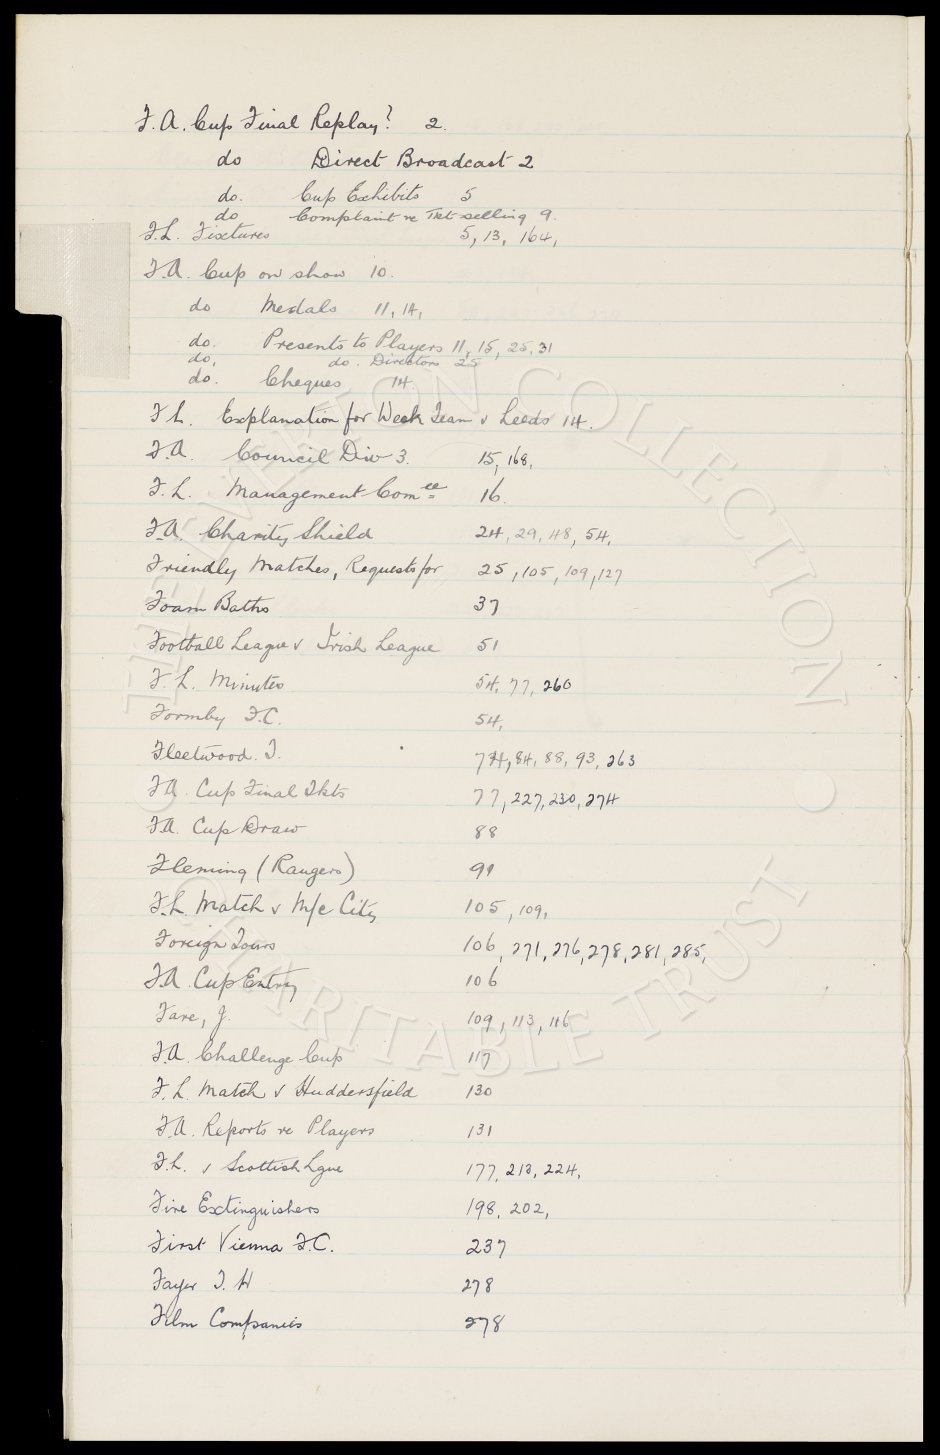 F.A. Cup Final Replay? 2.
do Direct Broadcast 2
do. Cup Exhibits 5
do Complaint re Tkt selling 9.
F.L. Fixtures 5, 13, 164,
F.A. Cup on show 10.
do Medals 11, 14,
do. Presents to Players 11, 15, 25, 31
do, do. Directors 25
do. Cheques 14.
F.L. Explanation for Weak Team v Leeds 14.
F.A. Council Div 3. 15, 168,
F.L. Management Comee 16.
F.A. Charity Shield 24, 29, 48, 54,
Friendly Matches, Requests for 25, 105, 109, 127
Foam Baths 37
Football League v Irish League 51
F.L. Minutes 54, 77, 260
Formby F.C. 54,
Fleetwood. T. 74, 84, 88, 93, 263
F.A. Cup Final Tkts 77, 227, 230, 274
F.A. Cup Draw 88
Fleming (Rangers) 91
F.L. Match v M/c City 105, 109,
Foreign Tours 106, 271, 276, 278, 281, 285,
F.A. Cup Entry 106
Fare, J. 109, 113, 116
F.A. Challenge Cup 117
F.L. Match v Huddersfield 130
F.A. Reports re Players 131
F.L. v Scottish Lgue 177, 213, 224,
Fire Extinguishers 198, 202,
First Vienna F.C. 237
Fayer T. H 278
Film Companies 278
THE EVERTON COLLECTION
CHARITABLE TRUST